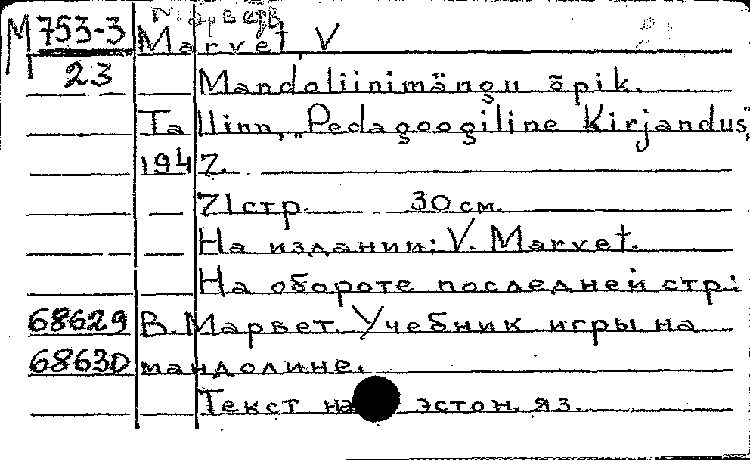 Марвет
М 753-3
23
Marvet, V
Mandoliinimängu õpik.
Tallinn, "Pedagoogiline Kirjandus",
1947.
71 стр. 30 см.
На издании: V. Marvet.
На обороте последней стр.:
68629 В. Марвет. Учебник игры на
68630 мандолине.
Текст на эстон. яз.